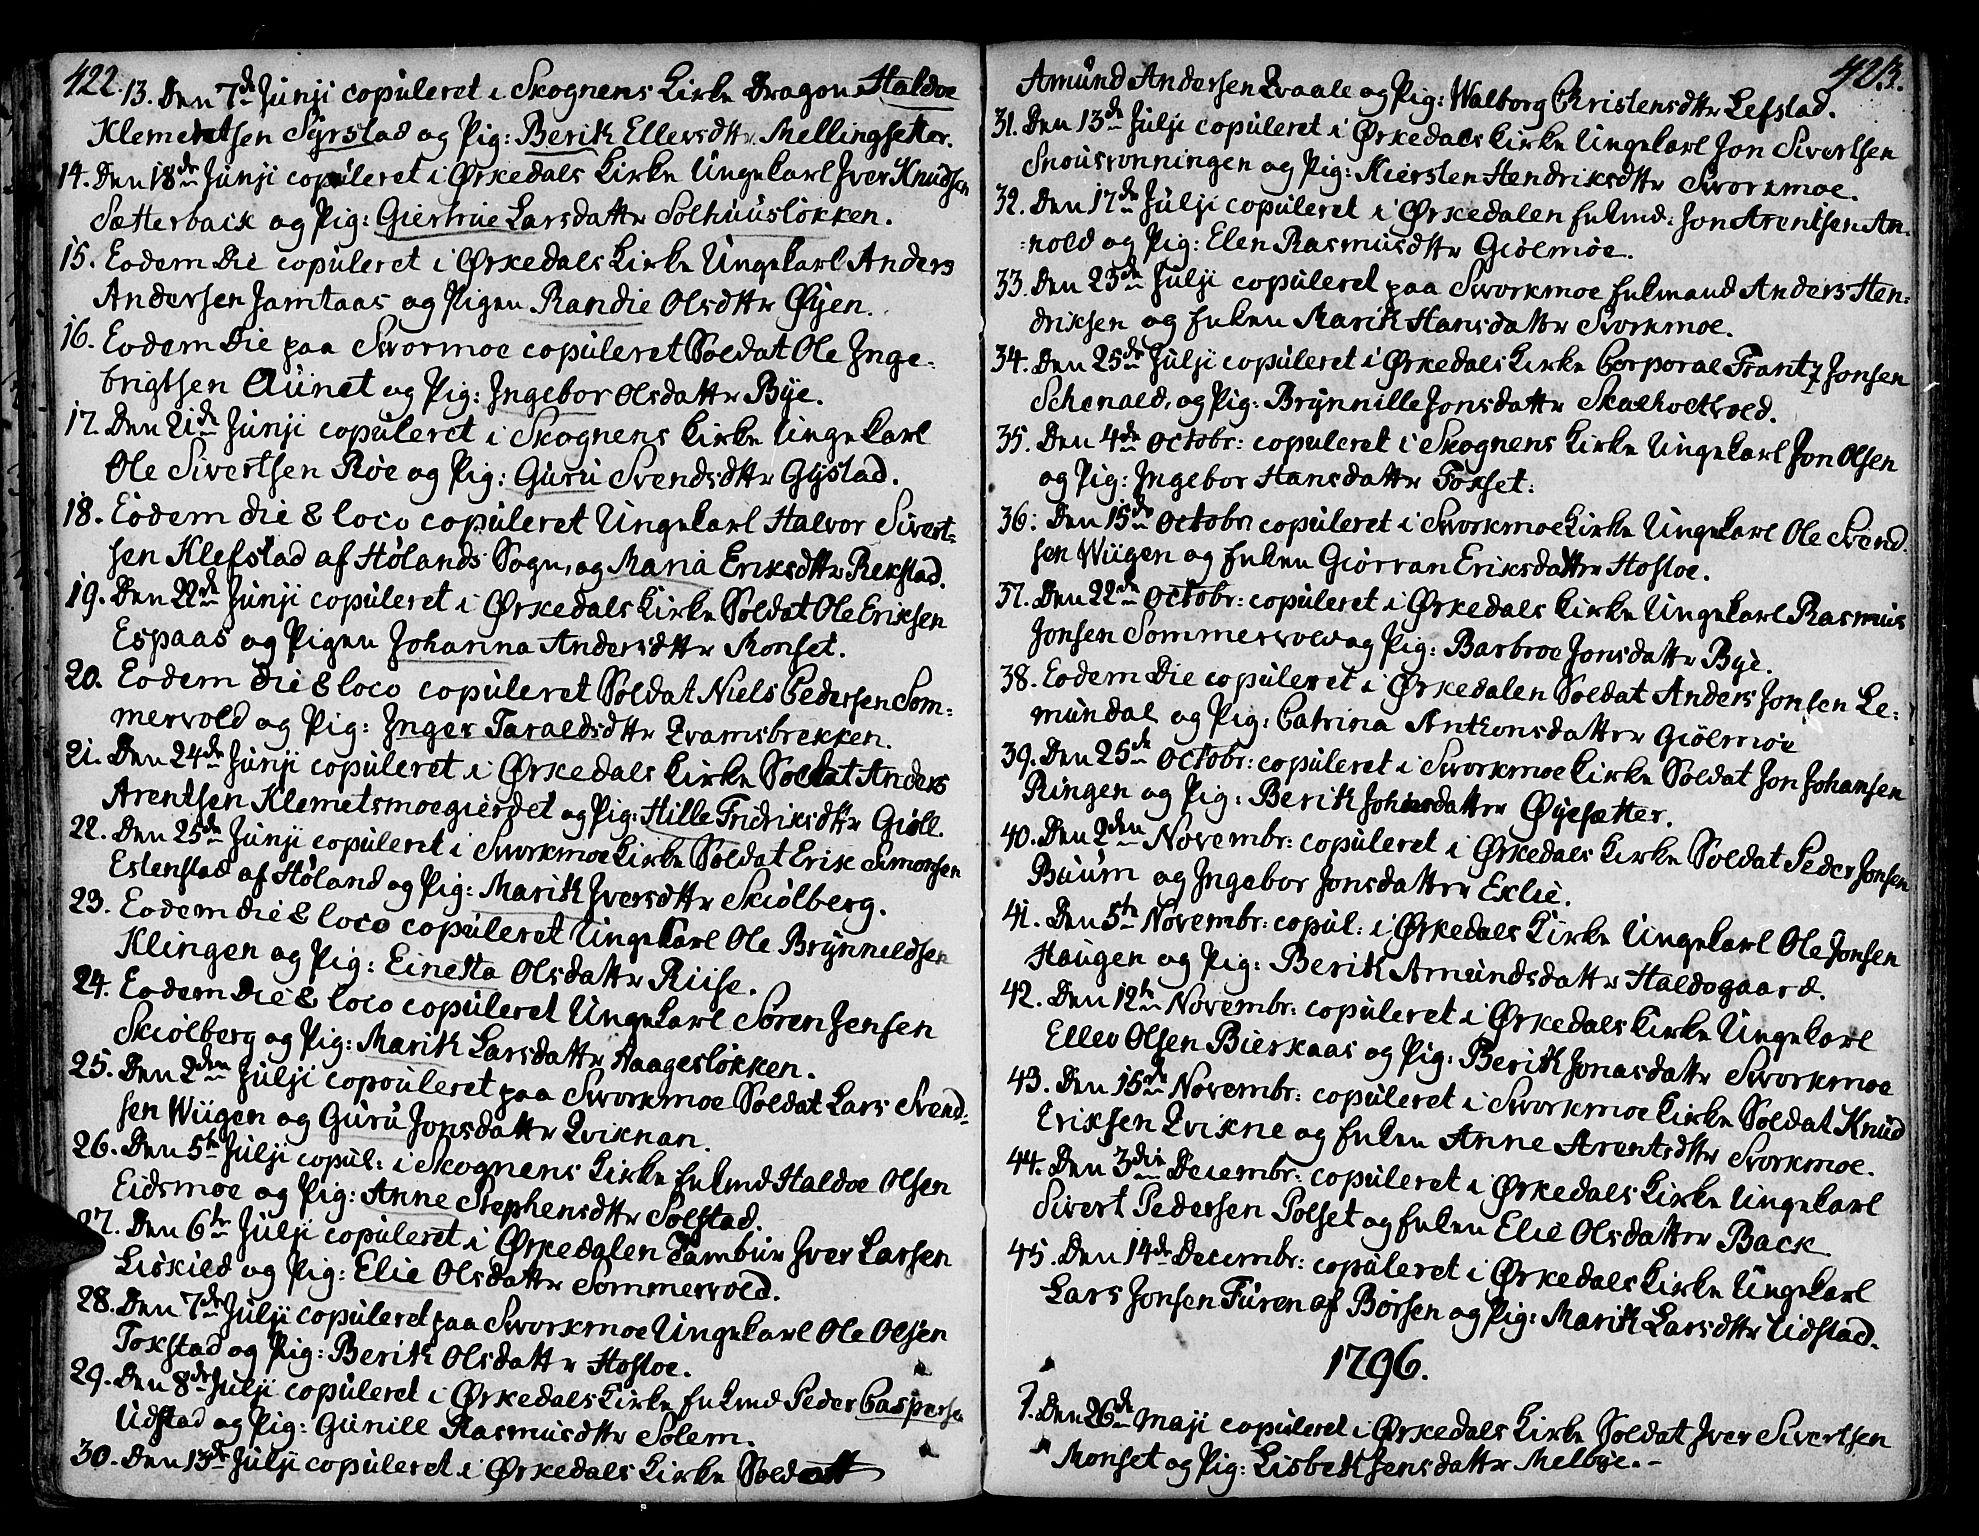 422.
13. Den 7de Junji copuleret i Skognens Kirke Dragon Haldoe
Klemetsen Syrstad og Pig: Berit Ellevsdttr Mellingsetter.
14. Den 18de Junji copuleret i Ørkedals Kirke Ungekarl Jver Knudsen
Sætterback og Pig: Giertrue Larsdattr Solhuusløkken.
15. Eodem Die copuleret i Ørkedals Kirke Ungekarl Anders
Andersen Jamtaas og Pigen Randie Olsdttr Øyen.
16. Eodem Die paa Svormoe copuleret Soldat Ole Jnge-
brigtsen Aunet og Pig: Jngebor Olsdattr Bye.
17. Den 21de Junji copuleret i Skognens Kirke Ungekarl
Ole Sivertsen Røe og Pig: Guru Svendsdttr Gystad.
18. Eodem die & loco copuleret Ungekarl Halvor Sivert-
sen Klefstad af Hølands Sogn, og Maria Eriksdttr Rekstad.
19. Den 22de Junji copuleret i Ørkedals Kirke Soldat Ole Eriksen
Espaas og Pigen Johanna Andersdttr Monset.
20. Eodem die & loco copuleret Soldat Niels Pedersen Som-
mervold og Pig: Jnger Taraldsdttr Qvamsbrekken.
21. Den 24de Junji copuleret i Ørkedals Kirke Soldat Anders
Arentsen Klemetsmoegierdet og Pig: Hille Fridriksdttr Giøll.
22. Den 25de Junji copuleret i Svorkmoe Kirke Soldat Erik Simonsen
Estenstad af Høland og Pig: Marit Jversdttr Skiølberg.
23. Eodem die & loco copuleret Ungekarl Ole Brynnildsen
Klingen og Pig: Einetta Olsdattr Riise.
24. Eodem Die & loco copuleret Ungekarl Søren Jensen
Skiølberg og Pig: Marit Larsdattr Haagesløkken.
25. Den 2den Julji copouleret paa Svorkmoe Soldat Lars Svend-
sen Wiigen og Guru Jonsdattr Qviknan.
26. Den 5te Julji copul: i Skognens Kirke Enkmd Haldoe Olsen
Eidsmoe og Pig: Anne Stephensdttr Solstad.
27. Den 6te Julji copuleret i Ørkedalen Tambur Jver Larsen
Liskied og Pig: Elie Olsdattr Sommervold.
28. Den 7de Julji copuleret paa Svorkmoe Ungekarl Ole Olsen
Tokstad og Pig: Berit Olsdattr Hosloe.
29. Den 8de Julji copuleret i Ørkedals Kirke Enkmd Peder Caspersen
Udstad og Pig: Gunild Rasmusdttr Solem.
30. Den 13de Julji copuleret i Ørkedals Kirke Soldatt
423.
Amund Andersen Qvaale og Pig: Walborg Christensdttr Lefstad.
31. Den 13de Julji copuleret i Ørkedals Kirke Ungekarl Jon Sivertsen
Snousrønningen og Pig: Kiersten Hendriksdttr Svorkmoe.
32. Den 17de Julji copuleret i Ørkedalen Enkmd: Jon Arentsen Ar-
-nold og Pig: Elen Rasmusdttr Giølmoe.
33. Den 23de Julji copuleret paa Svorkmoe Enkmand Anders Hen-
driksen og Enken Marit Hansdattr Svorkmoe.
34. Den 25de Julji copuleret i Ørkedals Kirke Corporal Frantz Jonsen
Schenald, og Pig: Brynnille Jonsdattr Skalholtvold.
35. Den 4de Octobr: copuleret i Skognens Kirke Ungekarl Jon Olsen
og Pig: Jngebor Hansdattr Tokset.
36: Den 15de Octobr copuleret i Svorkmoe Kirke Ungekarl Ole Svend
sen Wiigen og Enken Giørran Eriksdattr Hosloe.
37. Den 22de Octobr: copuleret i Ørkedals Kirke Ungekarl Rasmus
Jonsen Sommervold og Pig: Barbroe Jonsdattr Bye.
38. Eodem Die copuleret i Ørkedalen Soldat Anders Jonsen Le-
mundal og Pig: Catrina Anthonsdattr Giølmoe
39. Den 25de Octobr: copuleret i Svorkmoe Kirke Soldat Jon Johansen
Ringen og Pig: Berit Johansdattr Øyesætter.
40. Den 2den Novembr: copuleret i Ørkedals Kirke Soldat Peder Jonsen
Buum og Jngebor Jonsdattr Eklie.
41. Den 5te Novembr: copul: i Ørkedals Kirke Ungekarl Ole Jonsen
Haugen og Pig: Berit Amundsdattr Haldogaard.
42. Den 12te Novembr: copuleret i Ørkedals Kirke Ungekarl
Ellev Olsen Bierkaas og Pig: Berit Jonasdattr Svorkmoe
43. Den 15de Novembr: copuleret i Svorkmoe Kirke Soldat Knud
Eriksen Qvikne og Enken Anne Arentsdttr Svorkmoe.
44. Den 3die Decembr: copuleret i Ørkedals Kirke Ungekarl
Sivert Pedersen Solset og Enken Elie Olsdattr Back
45. Den 14de Decembr: copuleret i Ørkedals Kirke Ungekarl
Lars Jonsen Furen af Børsen og Pig: Marit Larsdttr Udstad.
1796.
1. Den 26de Maji copuleret i Ørkedals Kirke Soldat Jver Sivertsen
Monset og Pig: Lisbeth Jensdattr Melbye. -